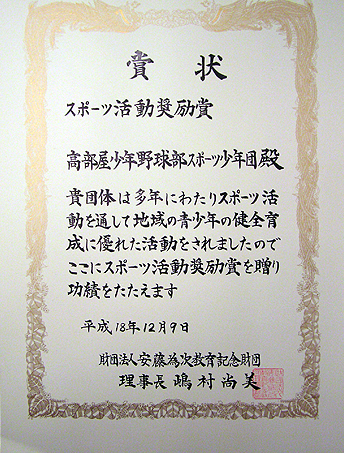 賞状
スポーツ活動奨励賞
高部屋少年野球部スポーツ少年団殿
貴団体は多年にわたりスポーツ活
動を通して地域の青少年の健全育
成に優れた活動をされましたので
ここにスポーツ活動奨励賞を贈り
功績をたたえます
平成18年12月9日
財団法人安藤為次教育記念財団
理事長嶋村尚美